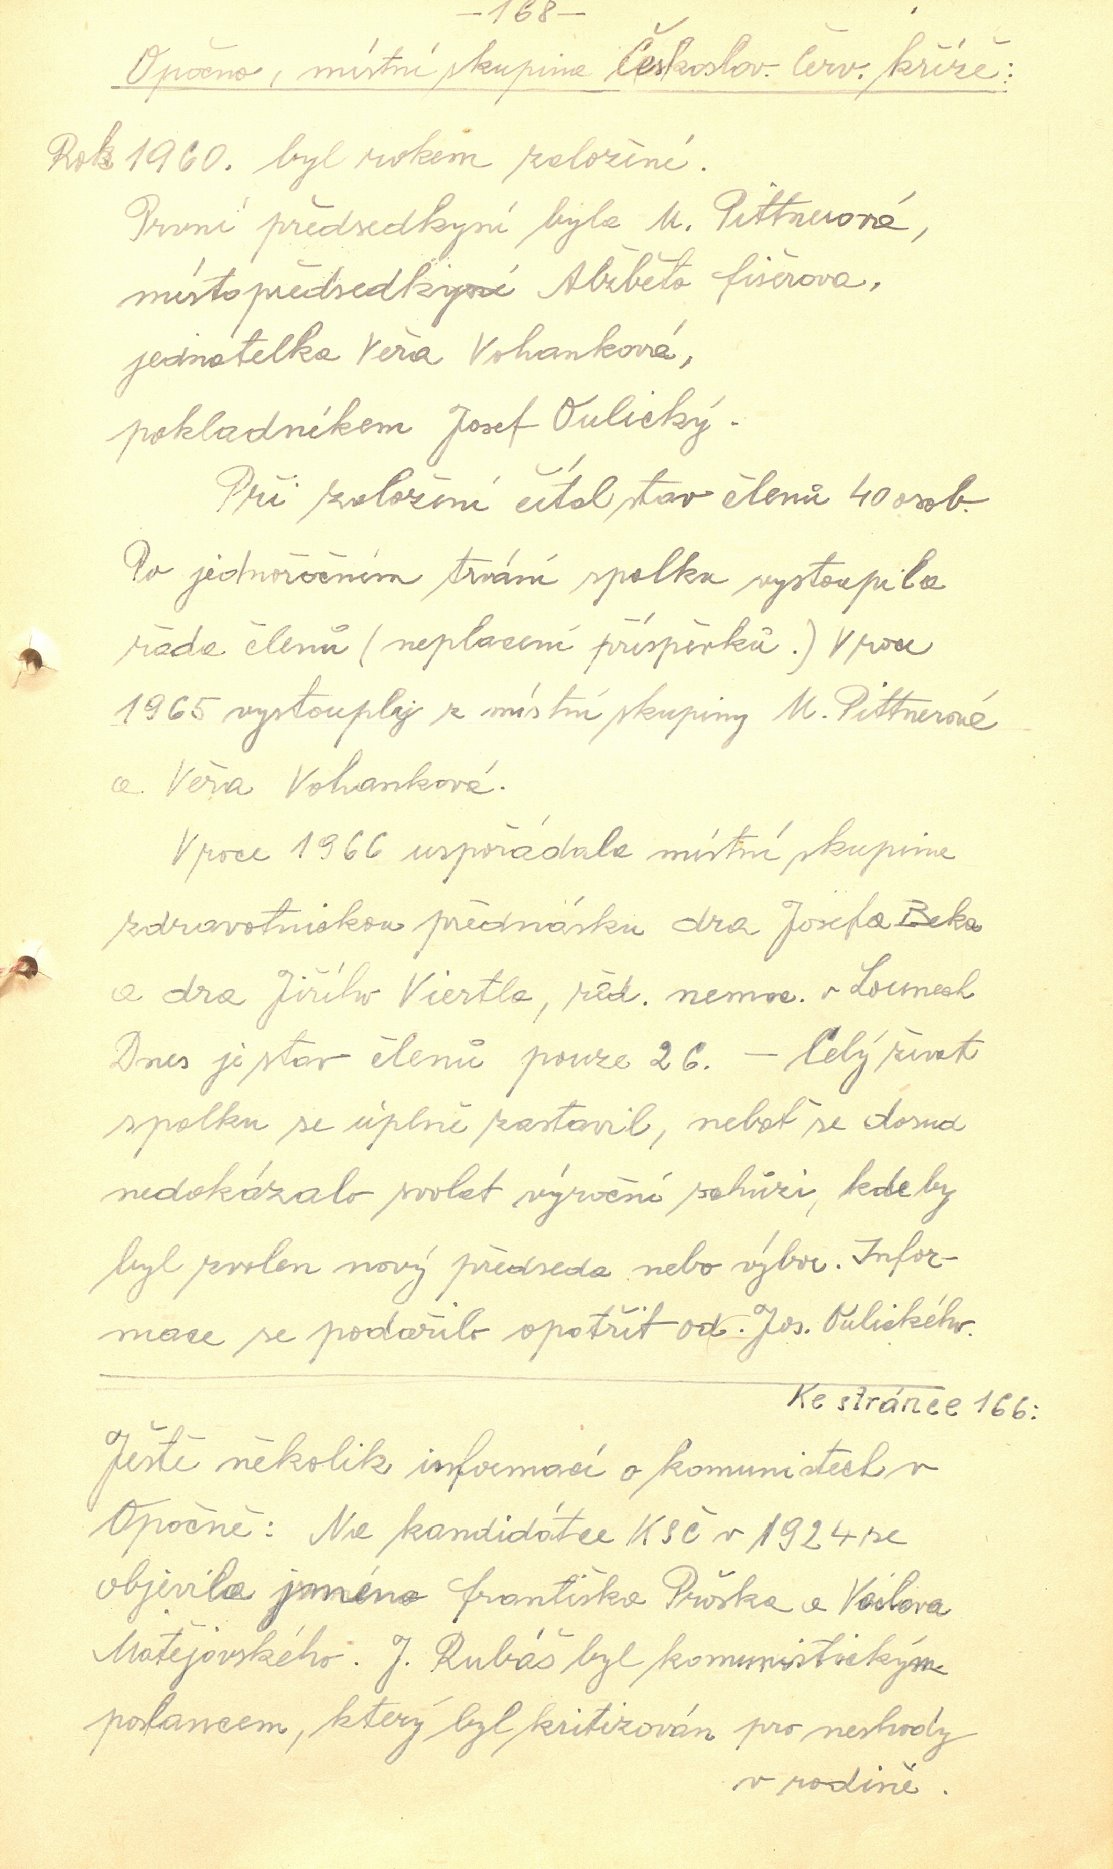 -168-
Opočno, místní skupina Českoslov. Červ. kříže:
Rok 1960. byl rokem založení.
První předsedkyní byla M. Pittnerová,
místopředsedkyní Alžběta Fišerova,
jednatelka Věra Vohanková,
pokladníkem Josef Oulický.
Při založení čítal stav členů 40 osob.
Po jednoročním trvání spolku vystoupila
řada členů (neplacení příspěvků.) V roce
1965 vystouply z místní skupiny M. Pittnerová
a Věra Vohanková.
V roce 1966 uspořádala místní skupina
zdravotnickou přednášku dra Josefa Beka
a dra Jiřího Viertla, řed. nemoc. v Lounech
Dnes je stav členů pouze 26. — Celý život
spolku se úplně zastavil, neboť se dosud
nedokázalo svolat výroční schůzi, kde by
byl zvolen nový předseda nebo výbor. Infor-
mace se podařilo opatřit od. Jos. Oulického.
Ke stránce 166:
Ještě několik informací o komunistech v
Opočně: Na kandidátce KSČ v 1924 se
objevila jména Františka Průška a Václava
Matějovského. J. Rubáš byl komunistickým
poslancem, který byl kritizován pro neshody
v rodině.